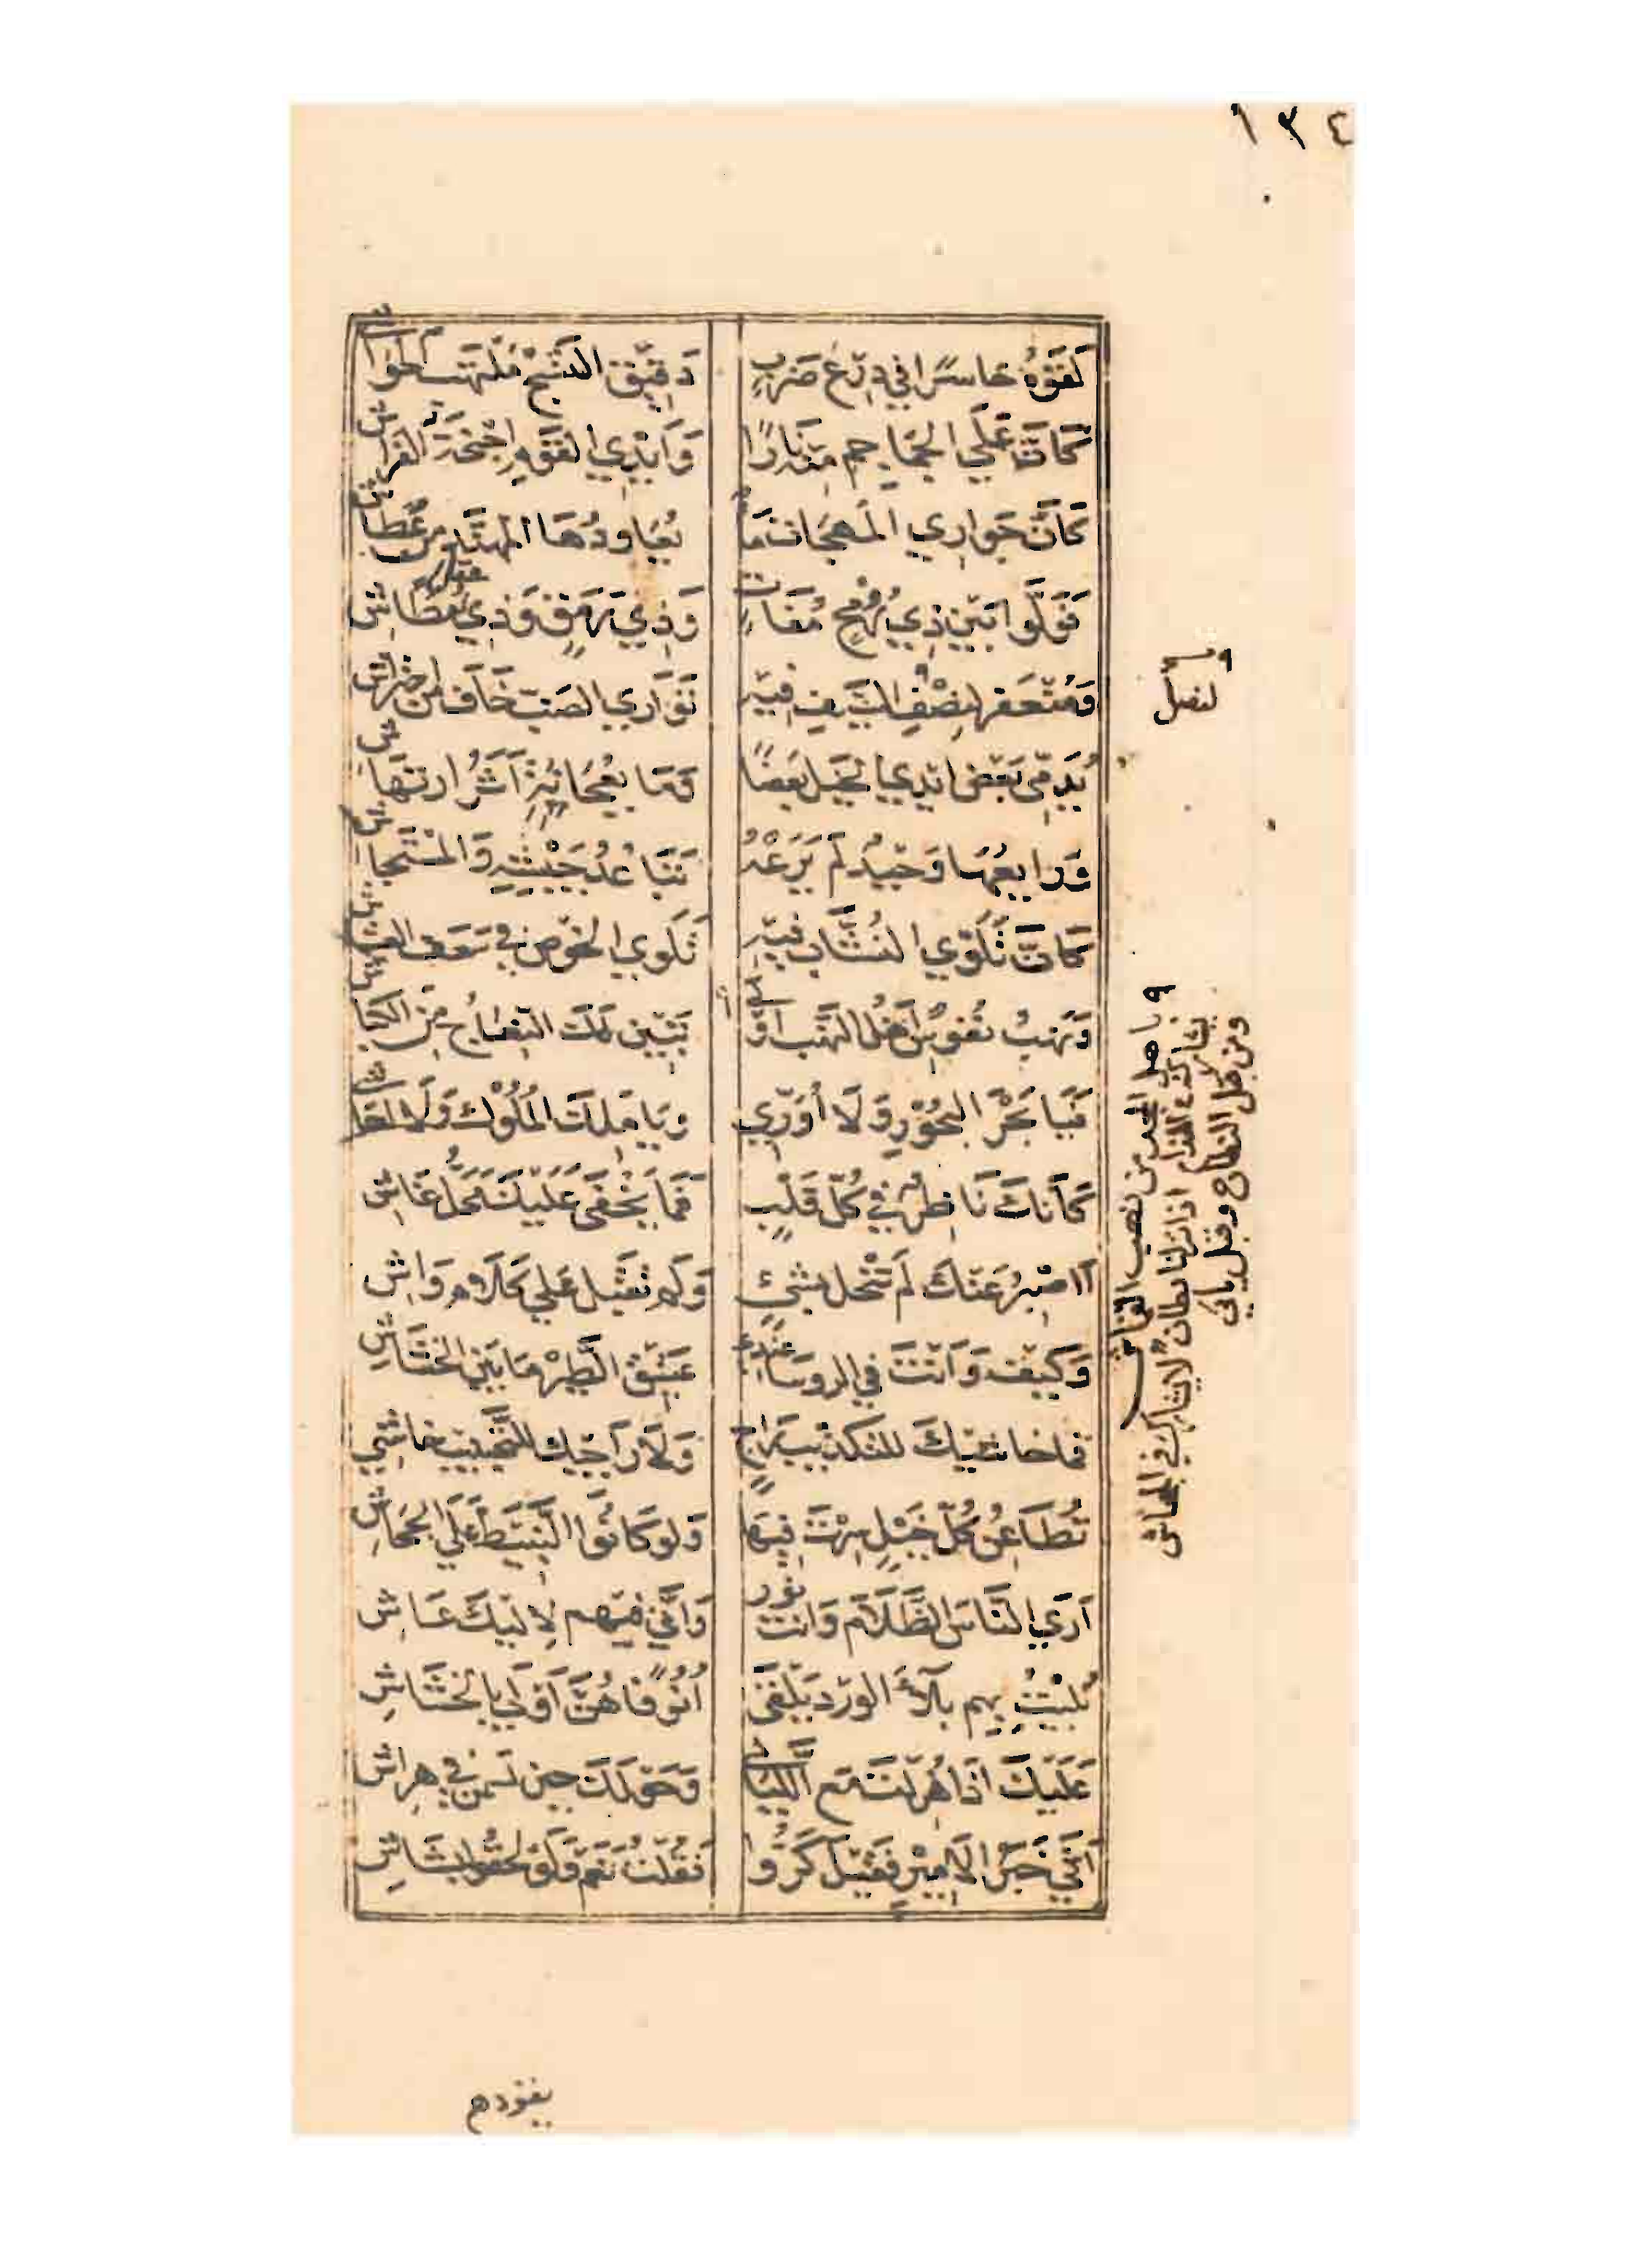 ١٣٤
لَقَوْهُ حَاسِرًا في دِرْعِ ضَرْبٍ دَقِيْقِ النَّسْجِ مُلْتَهِبِ الحَوَاشي
كَاَنَّ عَلَي الجَمَاجِمِ مِنْهُ نَارًا وَاَيْدِي القَوْمِ اَجْنِحَةُ الفَرَاشِ
كَاَنَّ جَوَارِي المُهَجَاتِ مَاءٌ يُعَاوِدُهَا المُهَنَّدُ مِنْ عُطَاشِ
فَوَلَّوا بَيْنَ ذِي رُوْحٍ مُفَاتٍ وَذِي رَمَقٍ وَذِي عقل مُطَاشِ
وَمُنْعَفِرٍ لِنَصْلِ السَّيْفِ فِيْهِ تَوَارِي الضَبِّ خَافَ مِن احتراشِ
لنصل
يُدَمِّي بَعْضُ اَيْدِي الخَيْلِ بَعْضًا وَمَا بِعُجَايَةٍ اَثَرُ ارتِهَاشِ
وَرَايِعُهَا وَحِيْدٌ لَمْ يَرُعْهُ تَبَاعُدُ جَيْشِهِ وَالمُسْتَجَاشِ
كَاَنَّ تَلَوِّي النُشَّابِ فِيْهِ تَلَوِّي الخُوْصِ في سَعَفِ العشَاشِ
وَنَهْبُ نُفُوسِ اَهْلِ النَهْبِ اَوْلي تَبَيَّنُ لَكَ النِّعَاجُ مِنَ الكِبَاشِ
باهل المجد من نهب القماش
تشارك في الندام اذا نزلنا بطانٌ لا تشارك في الجحاش
ومن قبل النطاح وقبل ياني
فَيَا بَحْرَ البُحُوْرِ وَلَا اُوَرِّي وَيَا مَلِكَ المُلُوْكِ وَلَا اُحَاشي
كَاَنَّكَ نَاظِرٌ في كُلِّ قَلْبٍ فَمَا يَخْفَى عَلَيْكَ مَحَلُّ غَاشِ
اَاَصْبِرُ عَنْكَ لَمْ تَبْخَل بشيءٍ وَلَمْ تَقْبَل عَلَي كَلَامَ وَاشِ
وَكَيْفَ وَاَنْتَ في الروسَاءِ عِنْدِي عَتِيْقُ الطَّيْرِ مَا بَيْنَ الخشَاشِ
فما خاشيكَ للتكذيبِ رَاجٍ وَلَا رَاجِيْكَ للتَّخْيِيْبِ خَاشي
تُطَاعِنُ كُلُّ خَيْلٍ سِرْتَ فِيهَا وَلَو كَانُوا النَّبِيْطَ عَلَي الجِحَاشِ
اَرَي النَّاسَ الظَّلَامَ وَاَنْتَ نور وَاِنِّي فِيْهِم لِاِلَيْكَ عَاشِ
بُلِيْتُ بِهِم بَلَاءَ الوَرْدِ يَلْقَى اُنُوْفًا هُنَّ اَوْلَي بِالخشَاشِ
عَلَيْكَ اِذَا هُزِلْتَ مَعَ اللَّيَالي وَحَوْلَكَ حِينَ تَسْمَنُ في هِرَاشِ
اَتَي خَبَرُ الاَمِيْرِ فَقِيْلَ كَرُّوا فَقُلْتُ نَعَمْ وَلَوْ لَحِقُوا بِشَاشِ
يقودهم